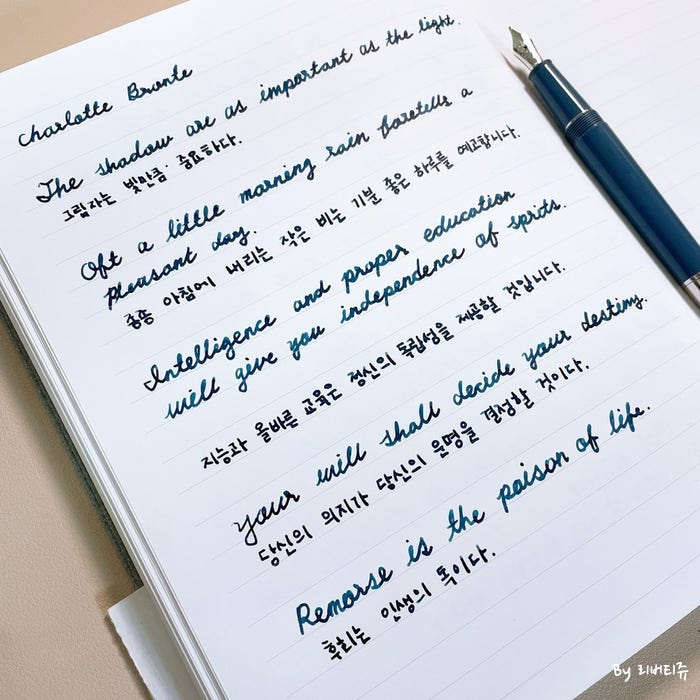 Charlotte Bronte
The shadow are as important as the light.
그림자는 빛만큼 중요하다.
Oft a little morning rain foretells a
pleasant day.
종종 아침에 내리는 작은 비는 기분 좋은 하루를 예고합니다.
Intelligence and proper education
will give you independence of sprits.
지능과 올바른 교육은 정신의 독립성을 제공할 것입니다.
Your will shall decide your destiny.
당신의 의지가 당신의 운명을 결정할 것이다.
Remorse is the poison of life.
후회는 인생의 독이다.
By 리버티쥬